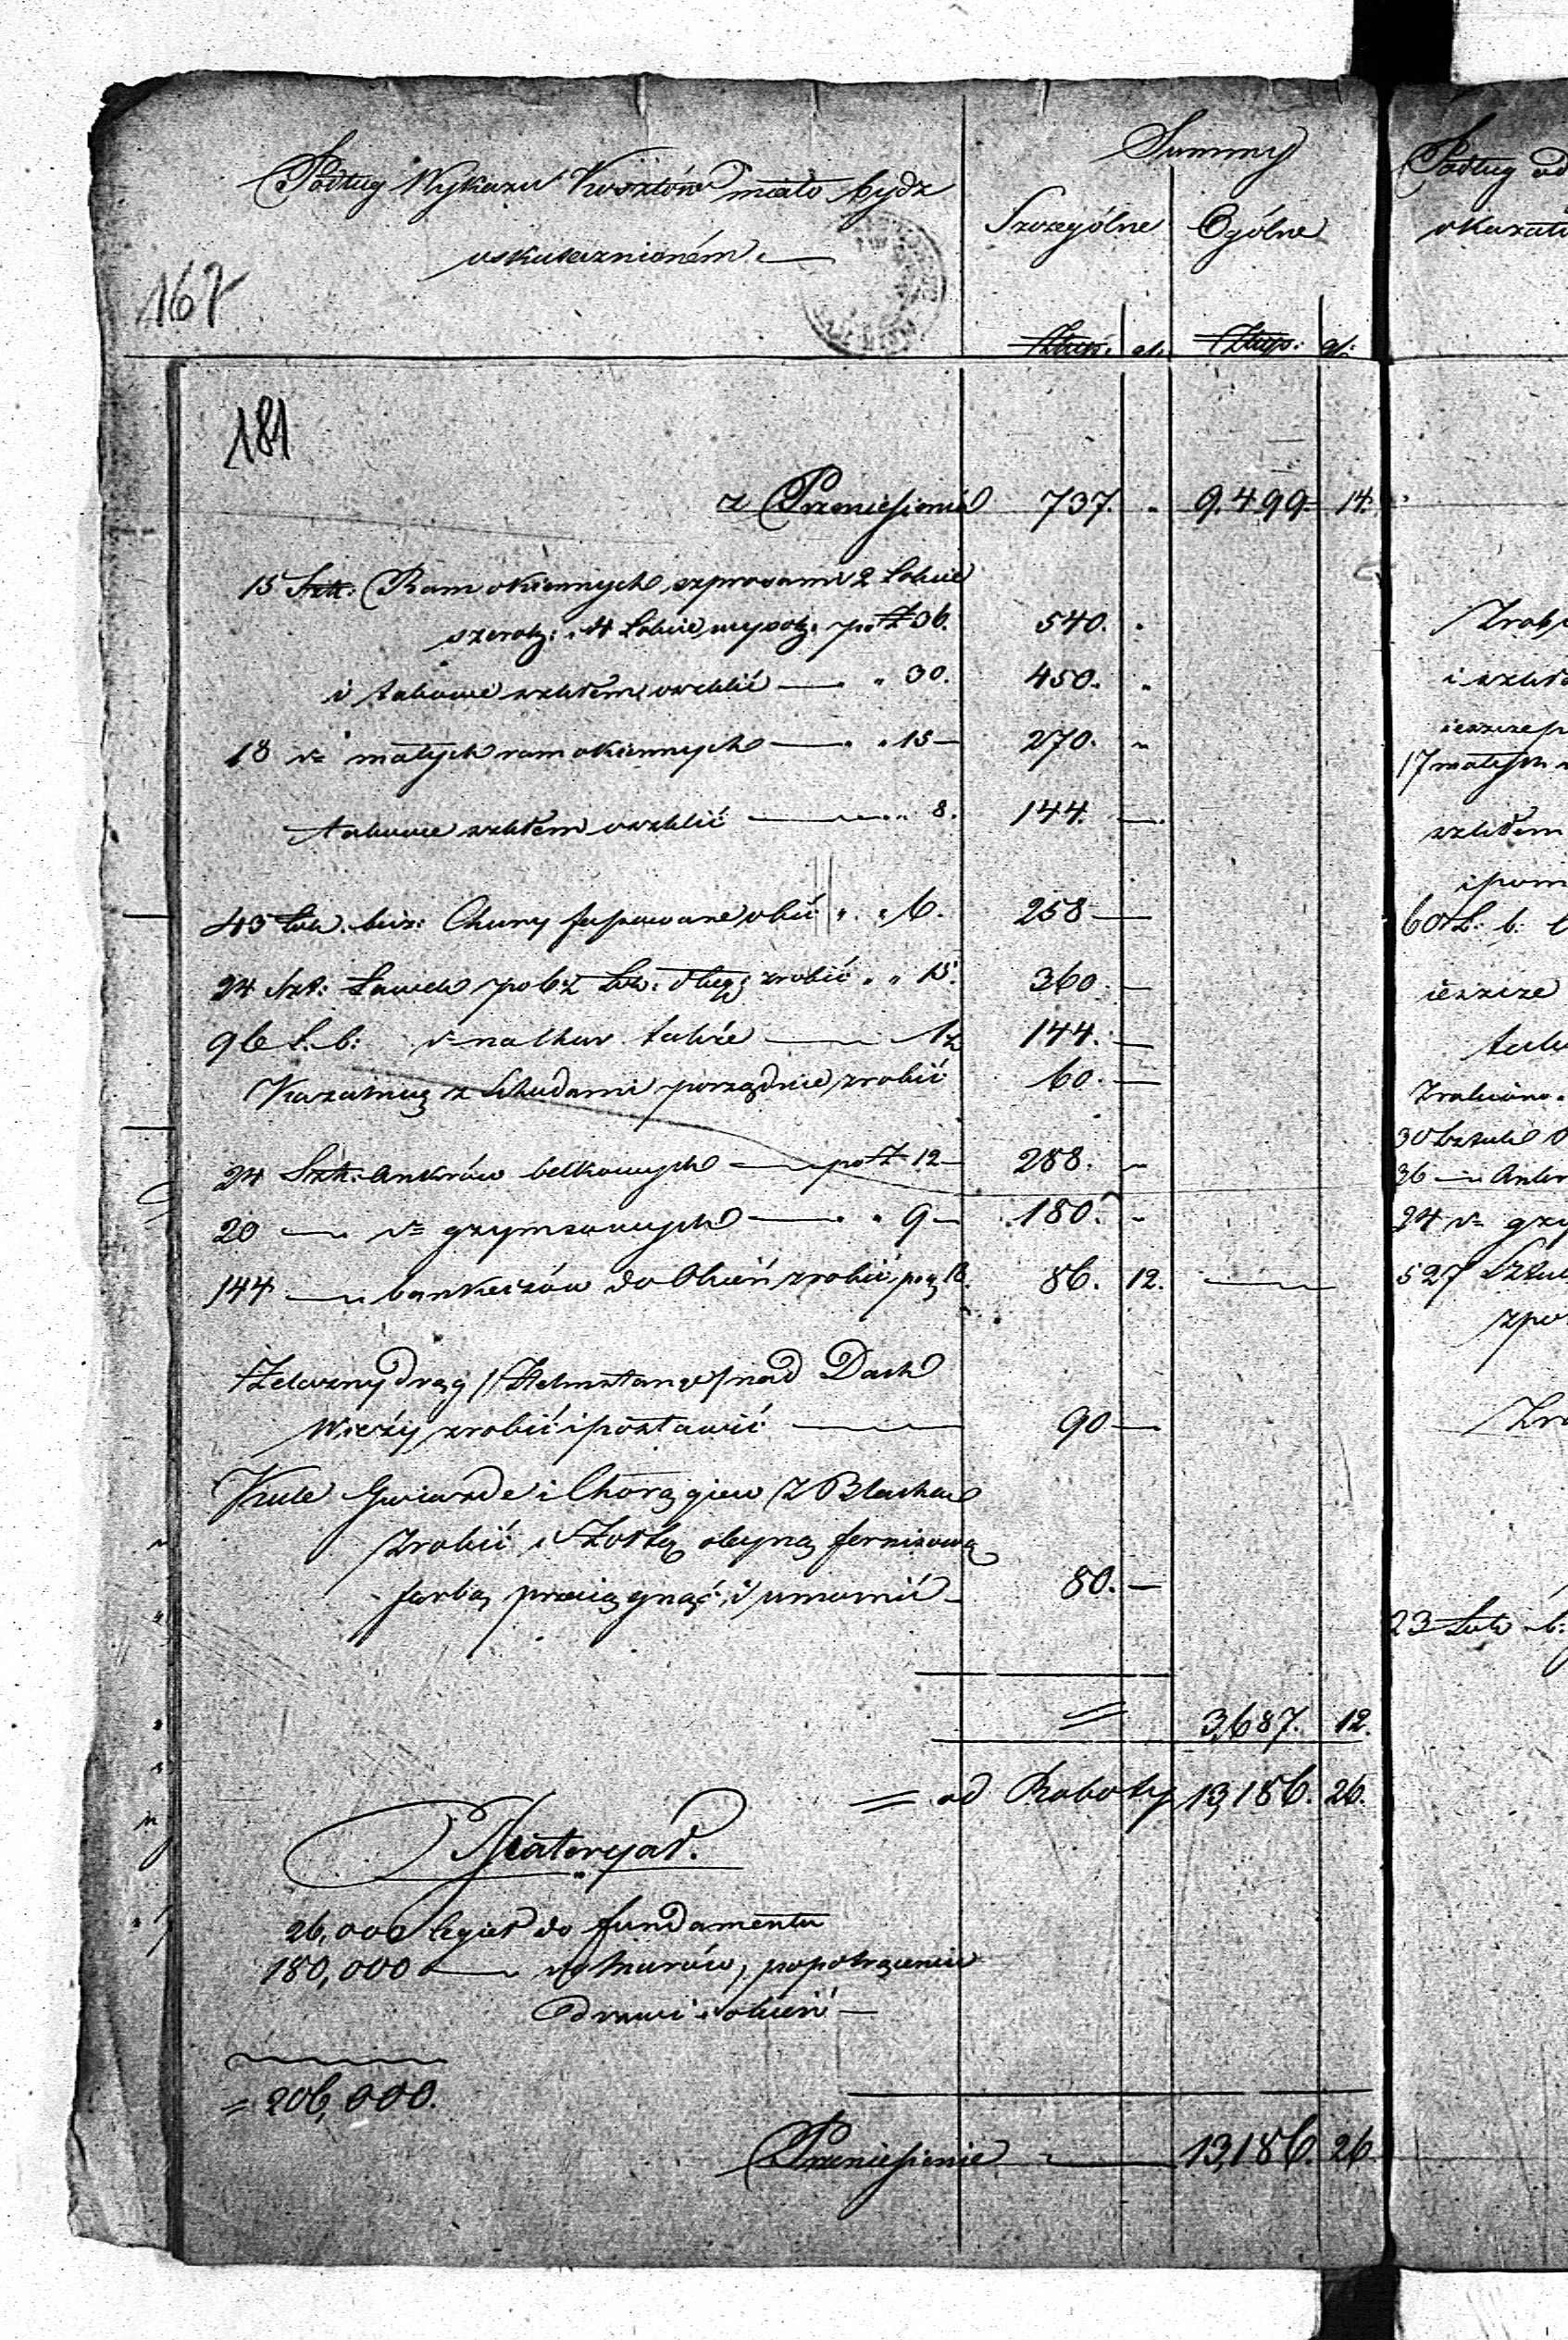 Podług Wykazu Kosztów miało bydz
uskutecznioném.
Summy
Szczególne Ogólne
Złup. gr. Złup. gr.
167
181
z Przeniesienia 737. " 9.499 14.
15 Sztk. Ram okiennych szprosami 2 Łokcie
szerok: 4 Łokcie wysok: po Zł 36. 540. "
i takowe szkłem oszklić — " 30. 450. "
18 małych ram okiennych — " 15 — 270. "
takowe szkłem oszklić — " 8. 144. —
43 Łok. bież: Chury fasowane obić " " 6. 258 —
24 Szt: Ławek po 6½ Łok. długę zrobić " " 15. 360. —
96 Ł. b: na Chur także — 1½ 144. —
Kazalnicę z Schudami porządnie zrobić 60. —
24 Sztk. Ankrów belkowych — po Zł 12 — 288. "
20 — grzymsowych — " 9 — 180. "
144 — bankeizów do Okień zrobić po g 18. 86. 12. —
Żelazny drąg / Helmstange / nad Dach
Wieży zrobić i postawić — 90 —
Kule Gwiazde i Chorągiew z Blachu
zrobić i Żołtą oleyną fernisową
farbą przeciągnąć i umocnić — 80. —
= 3,687. 12.
= od Roboty 13,186. 26.
Materyał.
26,000 Cegieł do fundamentu
180,000 — do Murów, po potrąceniu
Drzwi i okień —
= 206,000.
Przeniesienie — 13,186. 26
Podług
i szkłe
17 małych
szkłem
60 Ł: b:
ieszcze
Zrobiono.
30 Sztuk
36 — Ankr
24 grzy
527 Sztuk
23 Łok b: